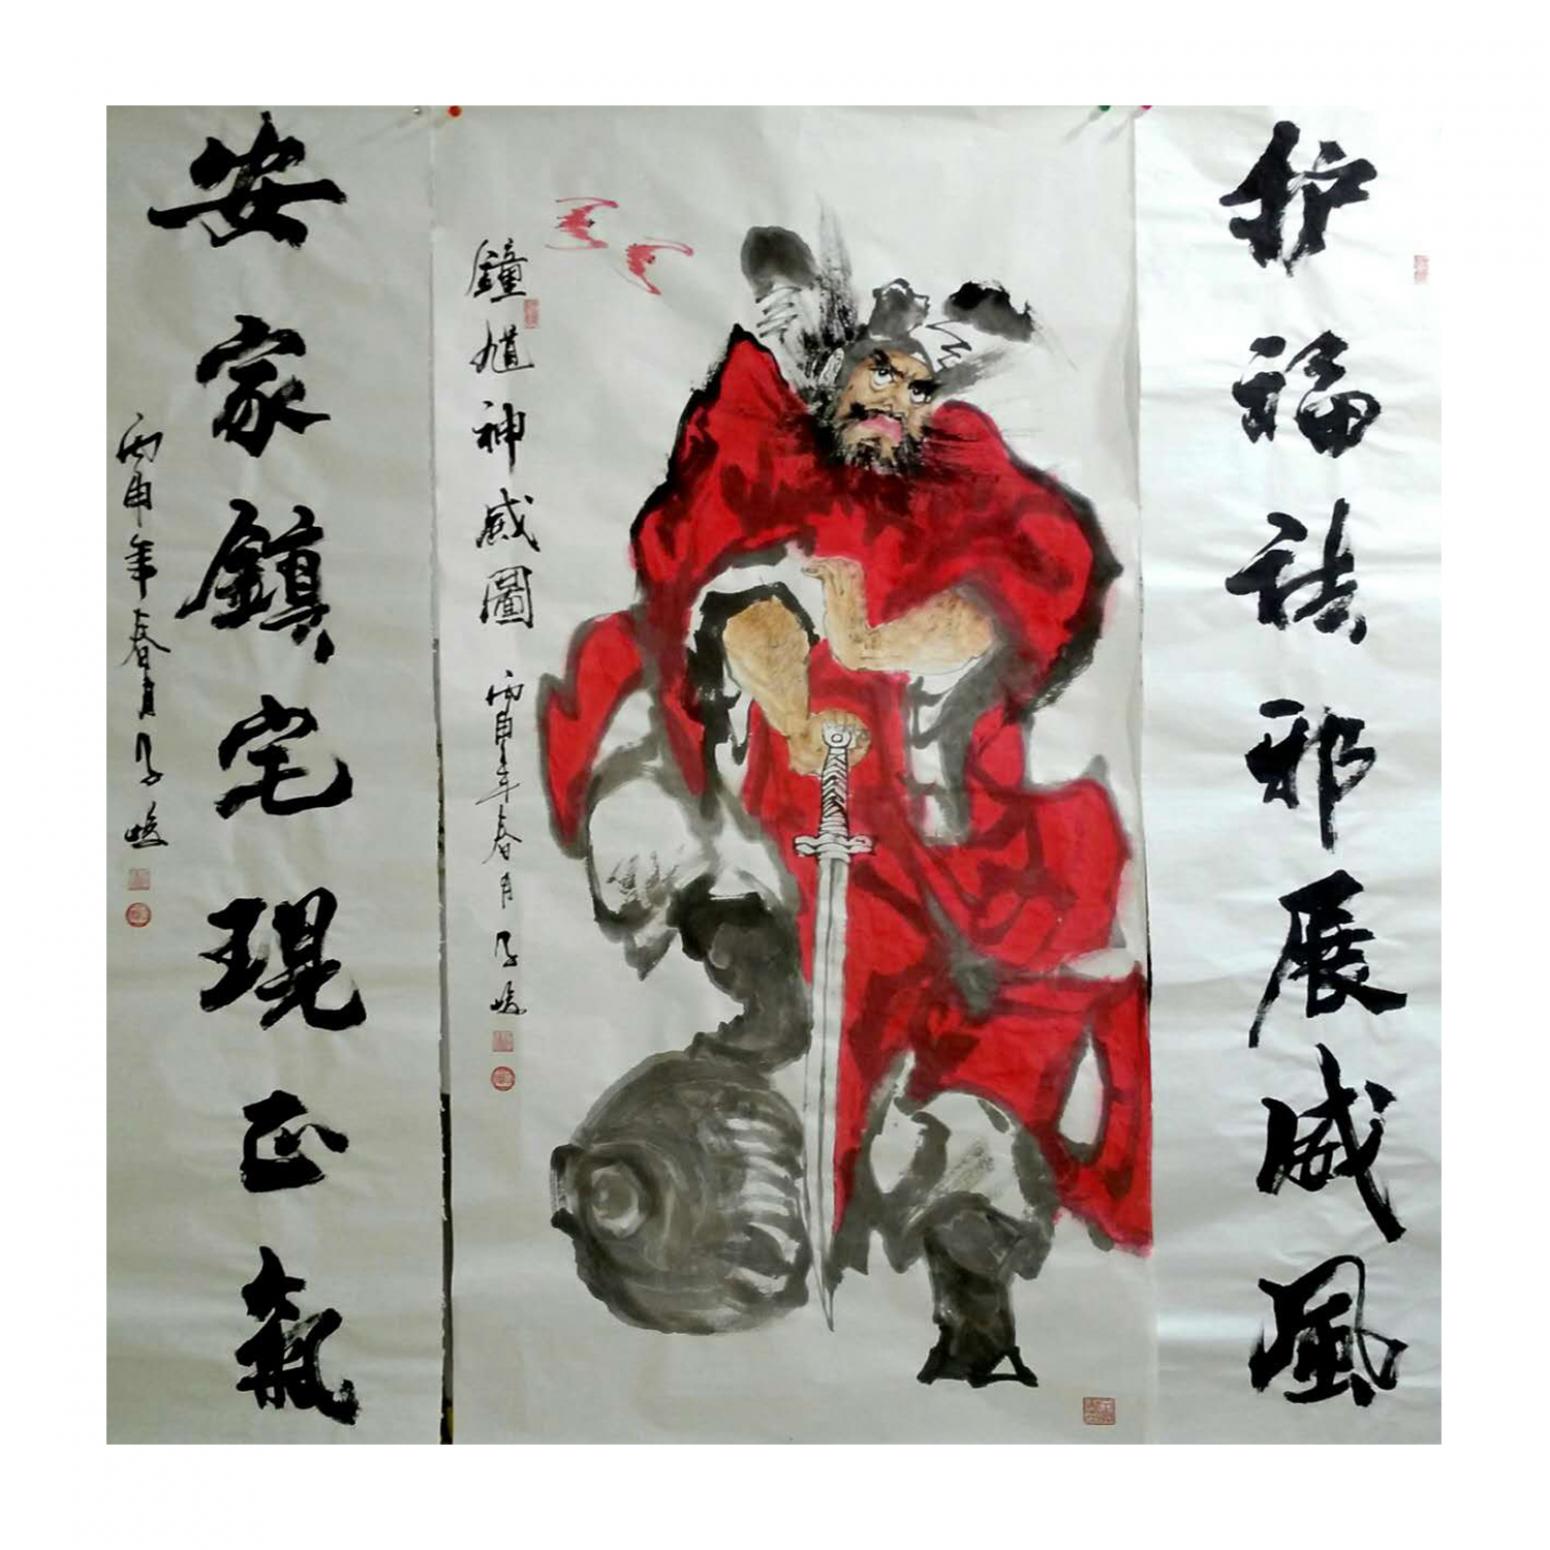 护福祛邪展威风
鐘馗神威圖
丙申年春月
安家鎮宅現正氣
丙申年春月